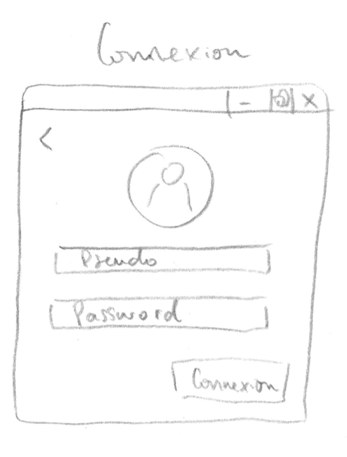 Connexion
Pseudo
Password
Connexion